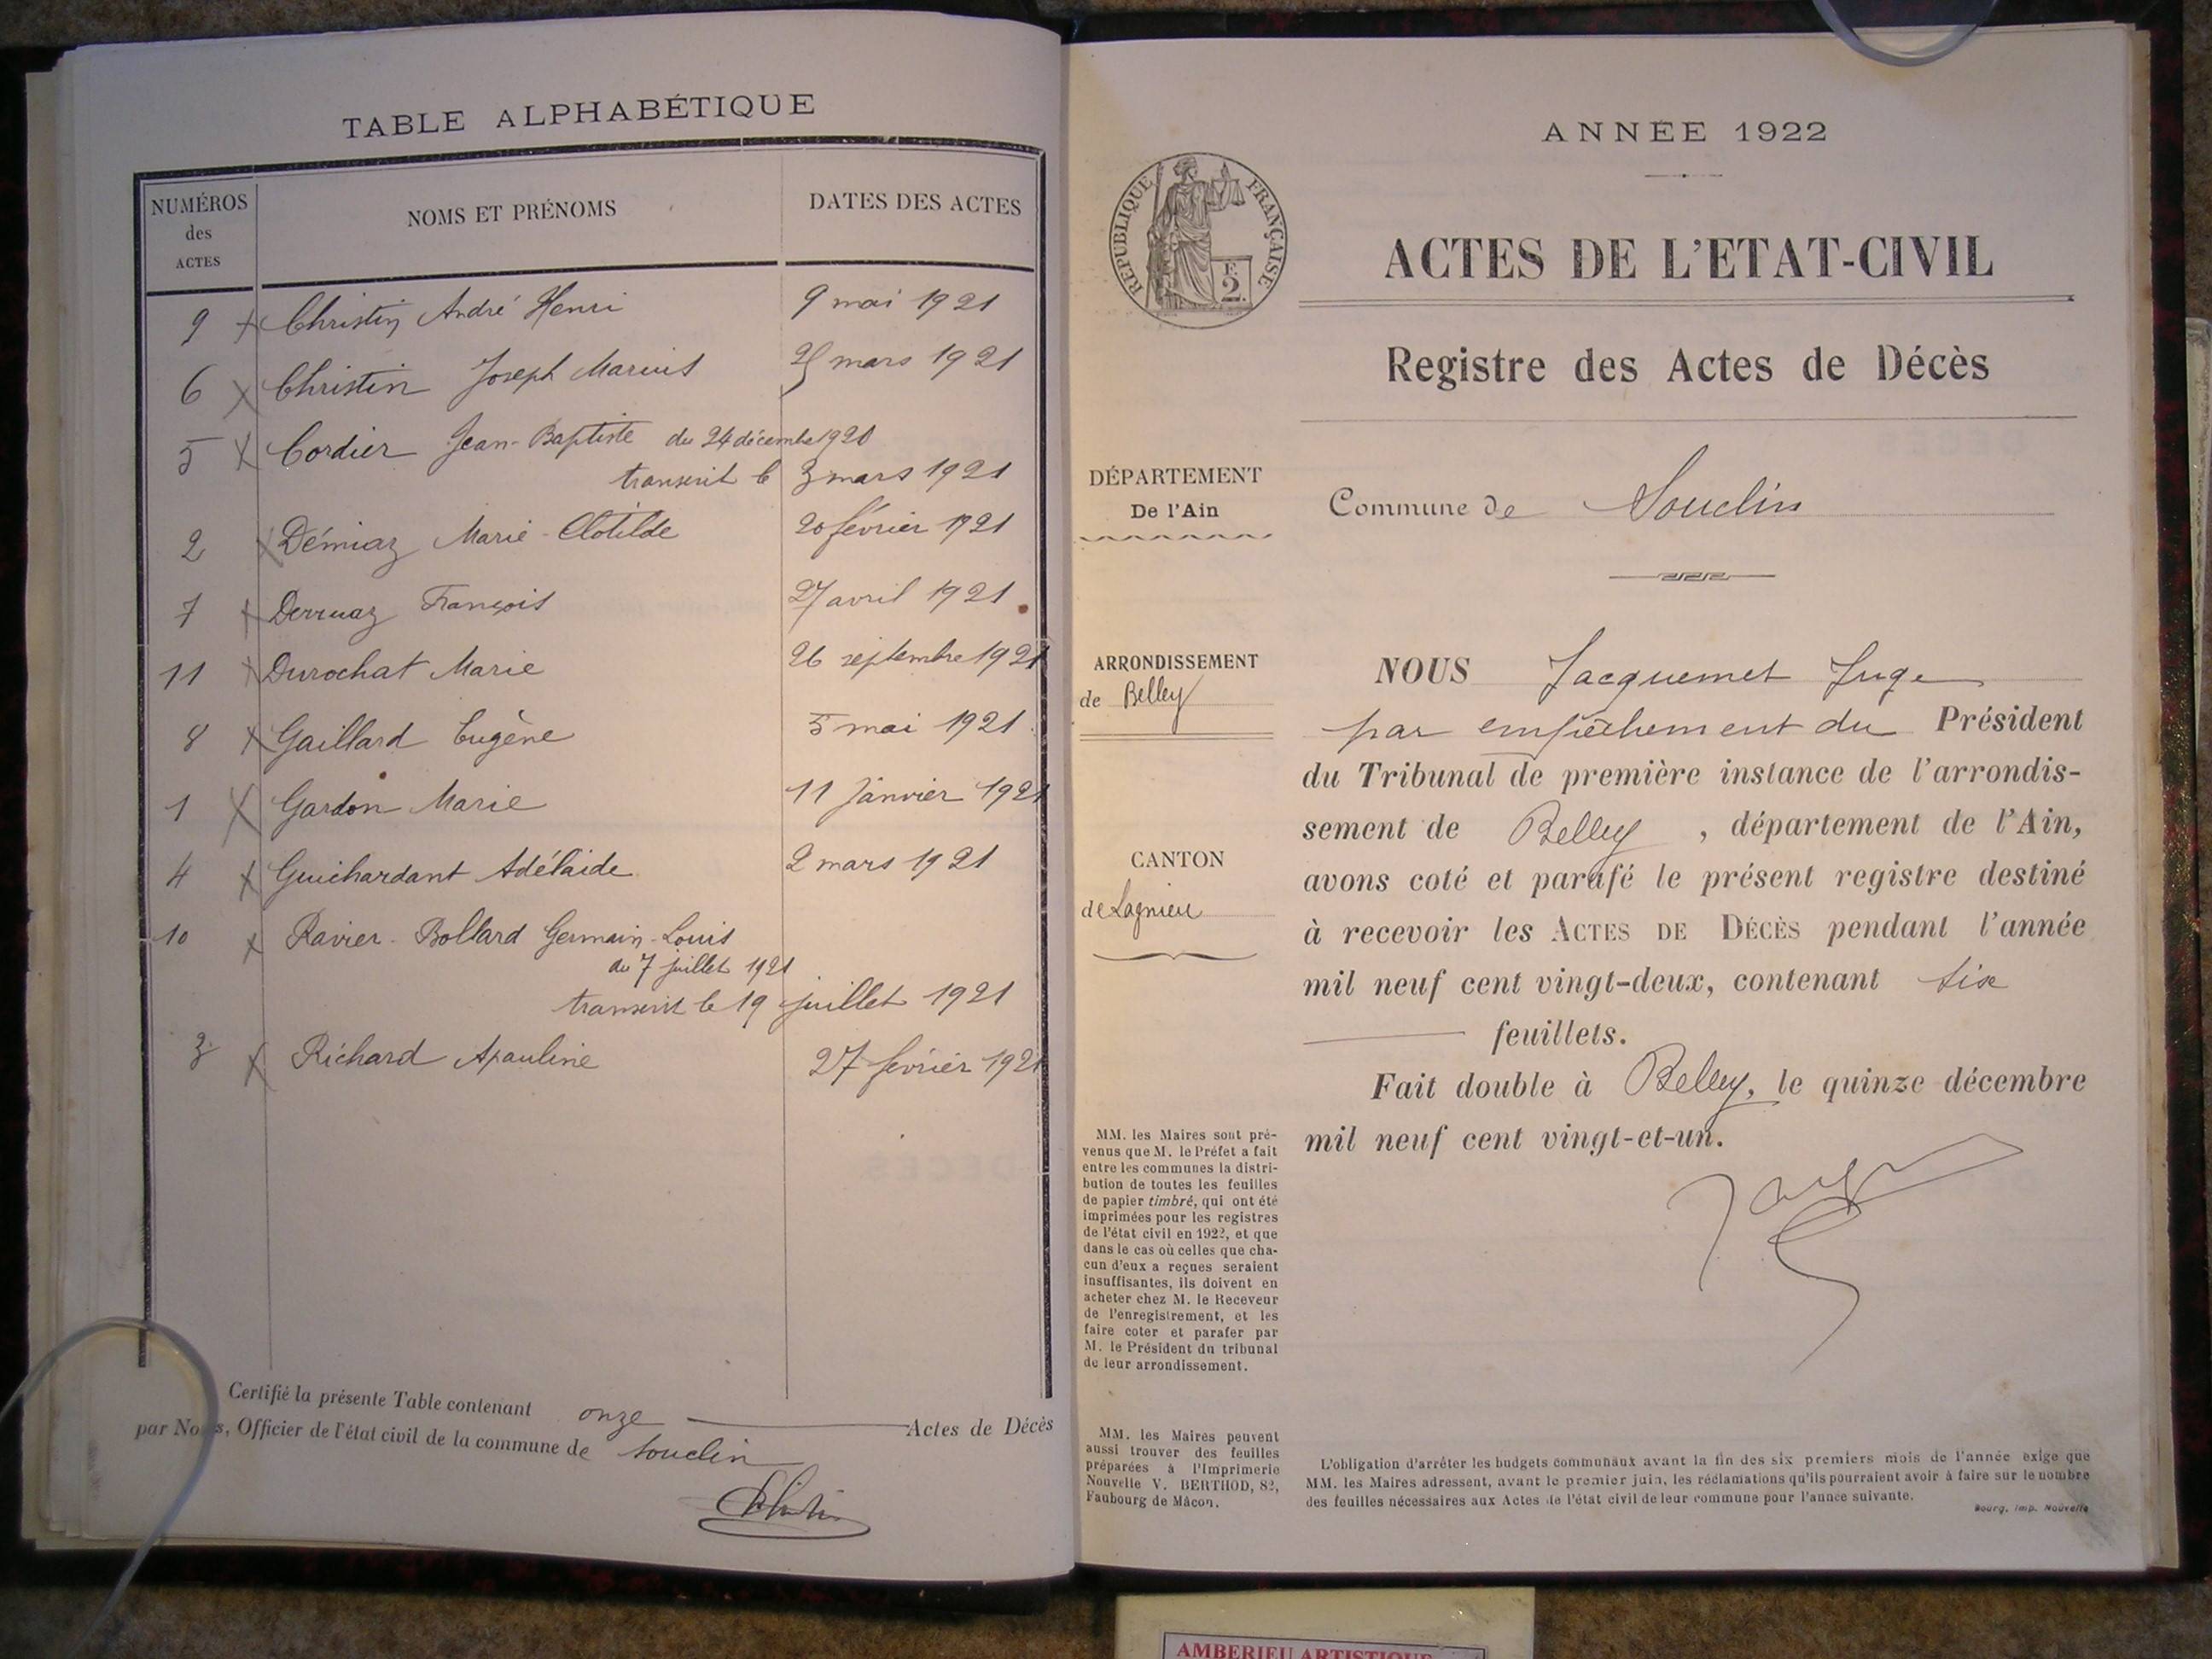 TABLE ALPHABÉTIQUE
NUMÉROS
des
ACTES
NOMS ET PRÉNOMS
DATES DES ACTES
9 Christin André Henri 9 mai 1921
6 Christin Joseph Marius mars 1921
5 Cordier Jean-Baptiste du 24 décembre 1920
transcrit le 3 mars 1921
2 Démiaz Marie-Clotilde 20 février 1921
7 Derruaz François 27 avril 1921
11 Durochat Marie 26 septembre 1921
8 Gaillard Eugène 5 mai 1921
1 Gardon Marie 11 janvier 1921
4 Guichardant Adélaide 2 mars 1921
10 Ravier-Bollard Germain-Louis
du 7 juillet 1921
transcrit le 19 juillet 1921
3 Richard Apauline 27 février 1921
Certifié la présente Table contenant onze Actes de Décès
par Nous, Officier de l'état civil de la commune de Souclin
ANNÉE 1922
RÉPUBLIQUE FRANÇAISE
F.
2.
ACTES DE L'ETAT-CIVIL
Registre des Actes de Décès
DÉPARTEMENT
De l'Ain
Commune de Souclin
ARRONDISSEMENT
de Belley
CANTON
de Lagnieu
NOUS Jacquemet Juge
par empêchement du Président
du Tribunal de première instance de l'arrondis-
sement de Belley, département de l'Ain,
avons coté et parafé le présent registre destiné
à recevoir les ACTES DE DÉCÈS pendant l'année
mil neuf cent vingt-deux, contenant six
feuillets.
Fait double à Belley, le quinze décembre
mil neuf cent vingt-et-un.
MM. les Maires sont pré-
venus que M. le Préfet a fait
entre les communes la distri-
bution de toutes les feuilles
de papier timbré, qui ont été
imprimées pour les registres
de l'état civil en 1922, et que
dans le cas où celles que cha-
cun d'eux a reçues seraient
insuffisantes, ils doivent en
acheter chez M. le Receveur
de l'enregistrement, et les
faire coter et parafer par
M. le Président du tribunal
de leur arrondissement.
MM. les Maires peuvent
aussi trouver des feuilles
préparées à l'Imprimerie
Nouvelle V. BERTHOD, 82,
Faubourg de Mâcon.
L'obligation d'arrêter les budgets communaux avant la fin des six premiers mois de l'année exige que
MM. les Maires adressent, avant le premier juin, les réclamations qu'ils pourraient avoir à faire sur le nombre
des feuilles nécessaires aux Actes de l'état civil de leur commune pour l'année suivante.
Bourg, Imp. Nouvelle
AMBERIEU ARTISTIQUE